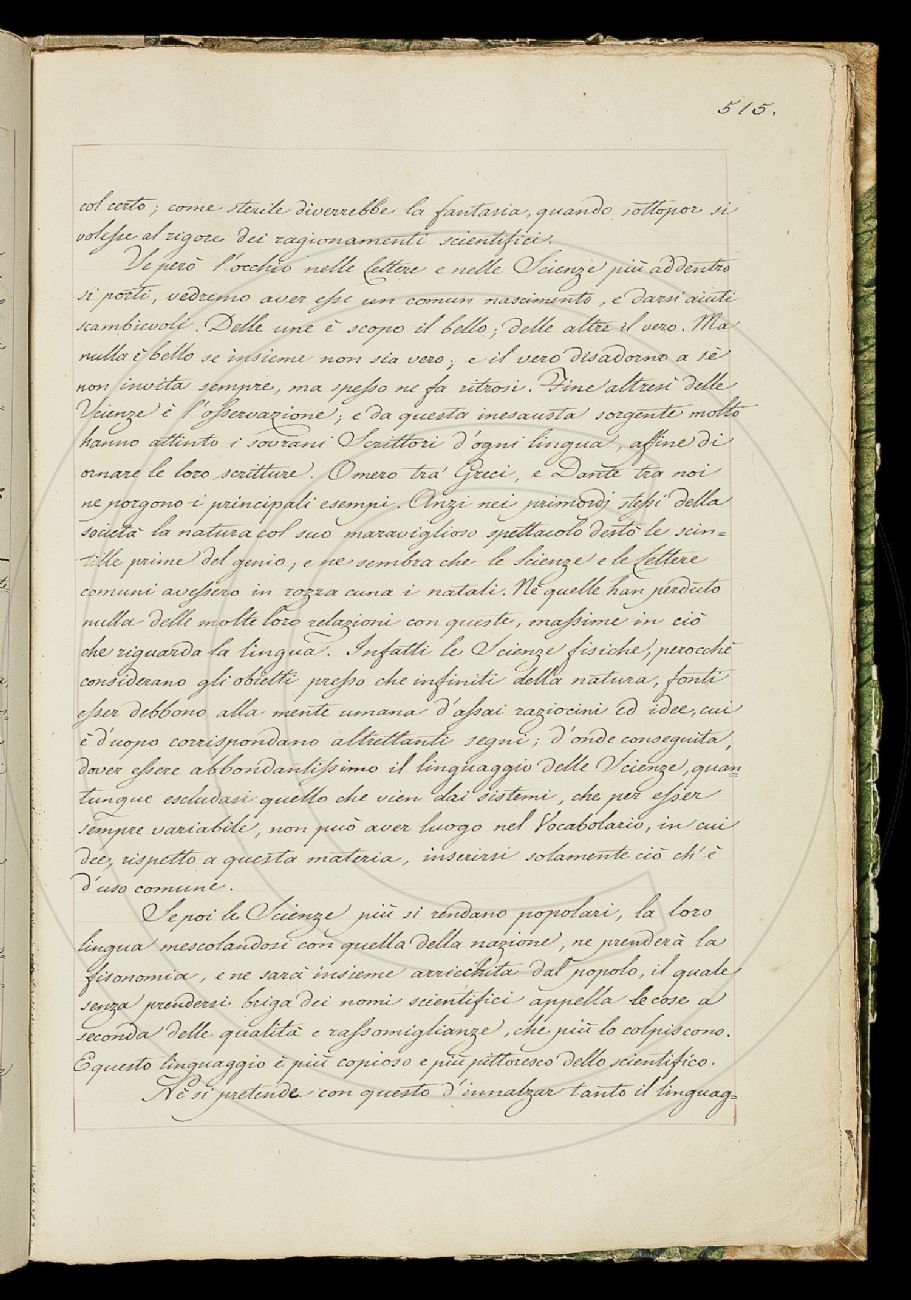 515.
col certo; come sterile diverrebbe la fantasia, quando sottopor si
volesse al rigore dei ragionamenti scientifici.
Se però l'occhio nelle Lettere e nelle Scienze più addentro
si porti, vedremo aver esse un comun nascimento, e darsi aiuti
scambievoli. Delle une è scopo il bello; delle altre il vero. Ma
nulla è bello se insieme non sia vero; e il vero disadorno a sè
non invita sempre, ma spesso ne fa ritrosi. Fine altresì delle
Scienze è l'osservazione; e da questa inesausta sorgente molto
hanno attinto i sovrani Scrittori d'ogni lingua, affine di
ornare le loro scritture. Omero tra' Greci, e Dante tra noi
ne porgono i principali esempi. Anzi nei primordj stessi della
società la natura col suo maraviglioso spettacolo destò le scin=
tille prime del genio; e ne sembra che le Scienze e le Lettere
comuni avessero in rozza cuna i natali. Nè quelle han perduto
nulla delle molte loro relazioni con queste, massime in ciò
che riguarda la lingua. Infatti le Scienze fisiche, perocchè
considerano gli obietti presso che infiniti della natura, fonti
esser debbono alla mente umana d'assai raziocini ed idee, cui
è d'uopo corrispondano altrettanti segni; d'onde conseguita,
dover essere abbondantissimo il linguaggio delle Scienze, quan=
tunque escludasi quello che vien dai sistemi, che per esser
sempre variabile, non può aver luogo nel Vocabolario, in cui
dee, rispetto a questa materia, inserirsi solamente ciò ch'è
d'uso comune.
Se poi le Scienze più si rendano popolari, la loro
lingua mescolandosi con quella della nazione, ne prenderà la
fisonomia, e ne sarà insieme arricchita dal popolo, il quale
senza prendersi briga dei nomi scientifici appella le cose a
seconda delle qualità e rassomiglianze, che più lo colpiscono.
E questo linguaggio è più copioso e più pittoresco dello scientifico.
Nè si pretende con questo d'innalzar tanto il linguag=